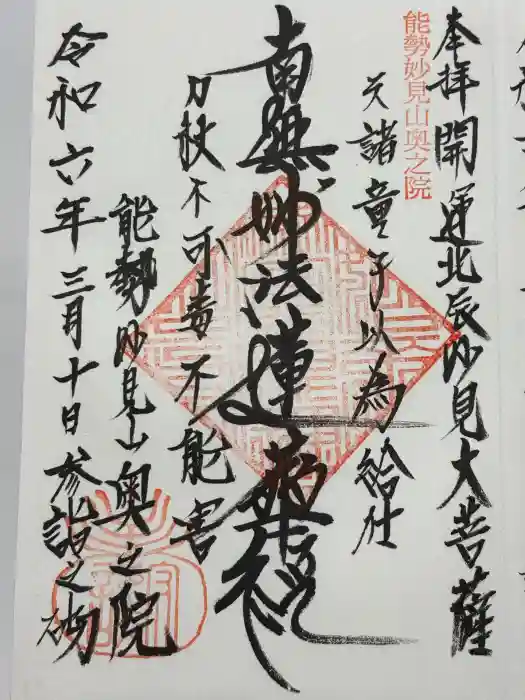 奉拝開運北辰妙見大菩薩
能勢妙見山奥之院
天諸童子以為給仕
南無妙法蓮華経
刀杖不可毒不能害
能勢妙見山奥之院
令和六年三月十日参詣之砌